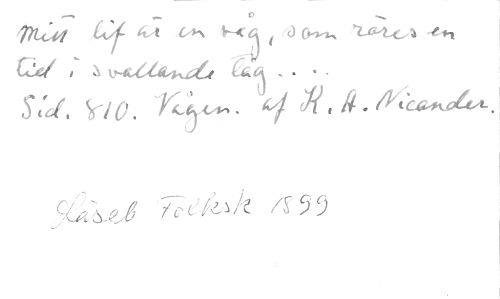 Mitt lif är en våg, som röres en
tid i svallande tåg....
Sid. 810. Vågen. af K. A. Nicander.
Läseb Folksk 1899